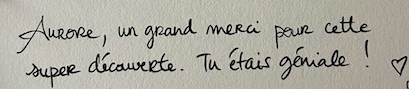 Aurore, un grand merci pour cette
super découverte. Tu étais géniale ! ♡